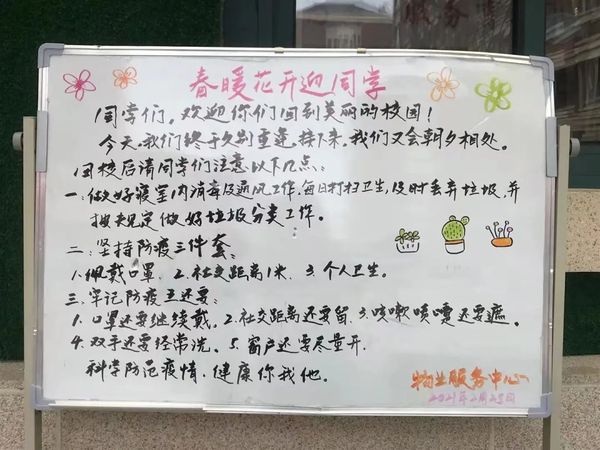 春暖花开迎同学
同学们，欢迎你们回到美丽的校园！
今天，我们终于久别重逢，接下来，我们又会朝夕相处。
回校后请同学们注意以下几点：
一、做好寝室内消毒及通风工作，每日打扫卫生，及时丢弃垃圾，并
按规定做好垃圾分类工作。
二、坚持防疫三件套：
1.佩戴口罩、2.社交距离1米、3.个人卫生。
三、牢记防疫五还要：
1.口罩还要继续戴，2.社交距离还要留，3.咳嗽喷嚏还要遮。
4.双手还要经常洗、5.窗户还要尽量开.
科学防范疫情，健康你我他。
物业服务中心
2021年2月25日